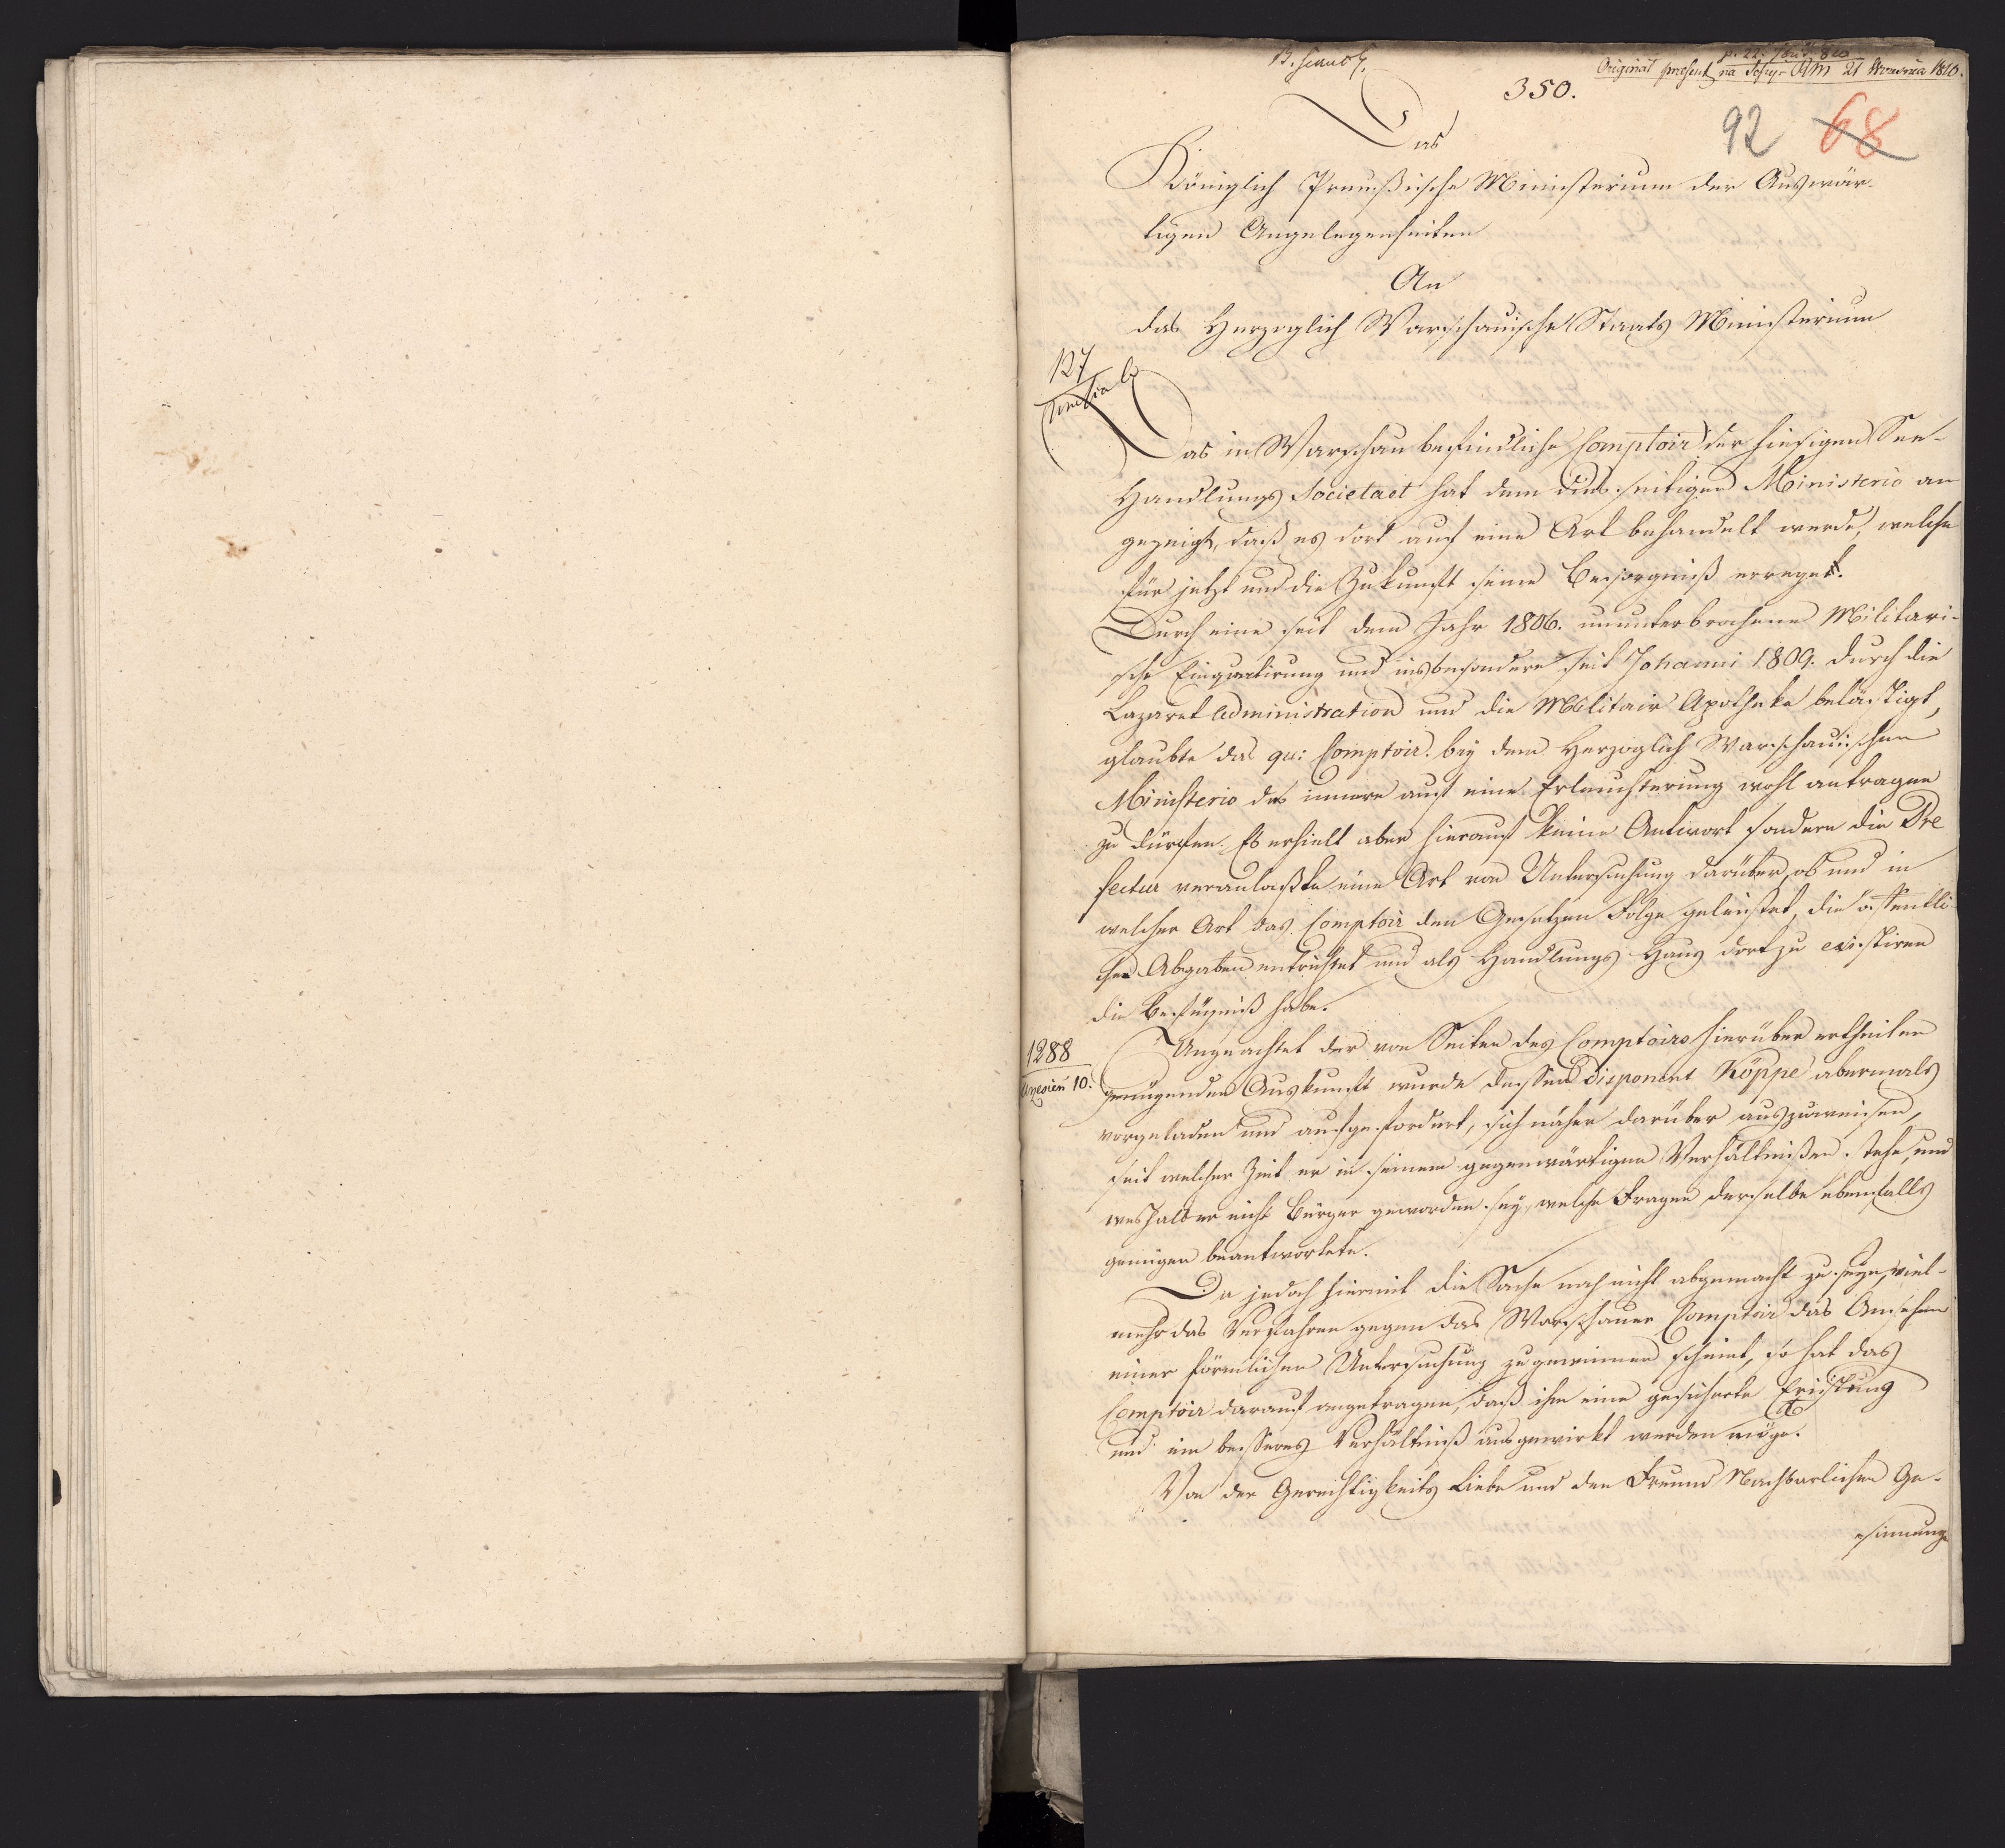 350.
Original present na Sessyi RM 21 Września 1810.
92 68
Das
Königlich Preußische Ministerium der Auswär-
tigen Angelegenheiten
An
das Herzoglich Warschauische Staats Ministerium
127
Das in Warschau befindliche Comptoir der hiesigen See-
Handlungs Societaet hat dem dies seitigen Ministerio an
gezeigt, daß es dort auf eine Art behandelt werde, welche
für jetzt und die Zukunft seine Besorgniß erreget.
Durch eine seit dem Jahr 1806. ununterbrochene Militari-
sche Einquartirung und insbesondere seit Johanni 1809. durch die
Lazaret administration und die Militair Apotheke belästigt,
glaubte das qu: Comptoir bey dem Herzoglich Warschauischen
Ministerio des innern auf eine Erleichterung wohl antragen
zu dürfen. Es erhielt aber hierauf keine Antwort sondern die Pre
fectur veranlaßte eine Art von Untersuchung darüber, ob und in
welcher Art das Comptoir den Gesetzen Folge geleistet, die öffentli-
chen Abgaben entrichtet und als Handlungs Haus dort zu existiren
die Befugniß habe.
1288
10.
Ungeachtet der von Seiten des Comptoirs hierüber ertheilten
genügenden Auskunft wurde dessen Disponent Köppe abermals
vorgeladen und aufgefordert, sich näher darüber auszuweisen,
seit welcher Zeit er in seinem gegenwärtigen Verhältnißen stehe, und
weshalb er nicht Bürger geworden sey, welche Fragen derselbe ebenfalls
genügen beantwortete.
Da jedoch hiermit die Sache noch nicht abgemacht zu seyn, viel-
mehr das Verfahren gegen das Warschauer Comptoir das Ansehen
einer förmlichen Untersuchung zu gewinnen scheint, so hat das
Comptoir darauf angetragen, daß ihm eine gesicherte Existenz
und ein besseres Verhältniß ausgewirkt werden möge.
Von der Gerechtigkeits Liebe und den Freund Nachbarlichen Ge-
sinnunge